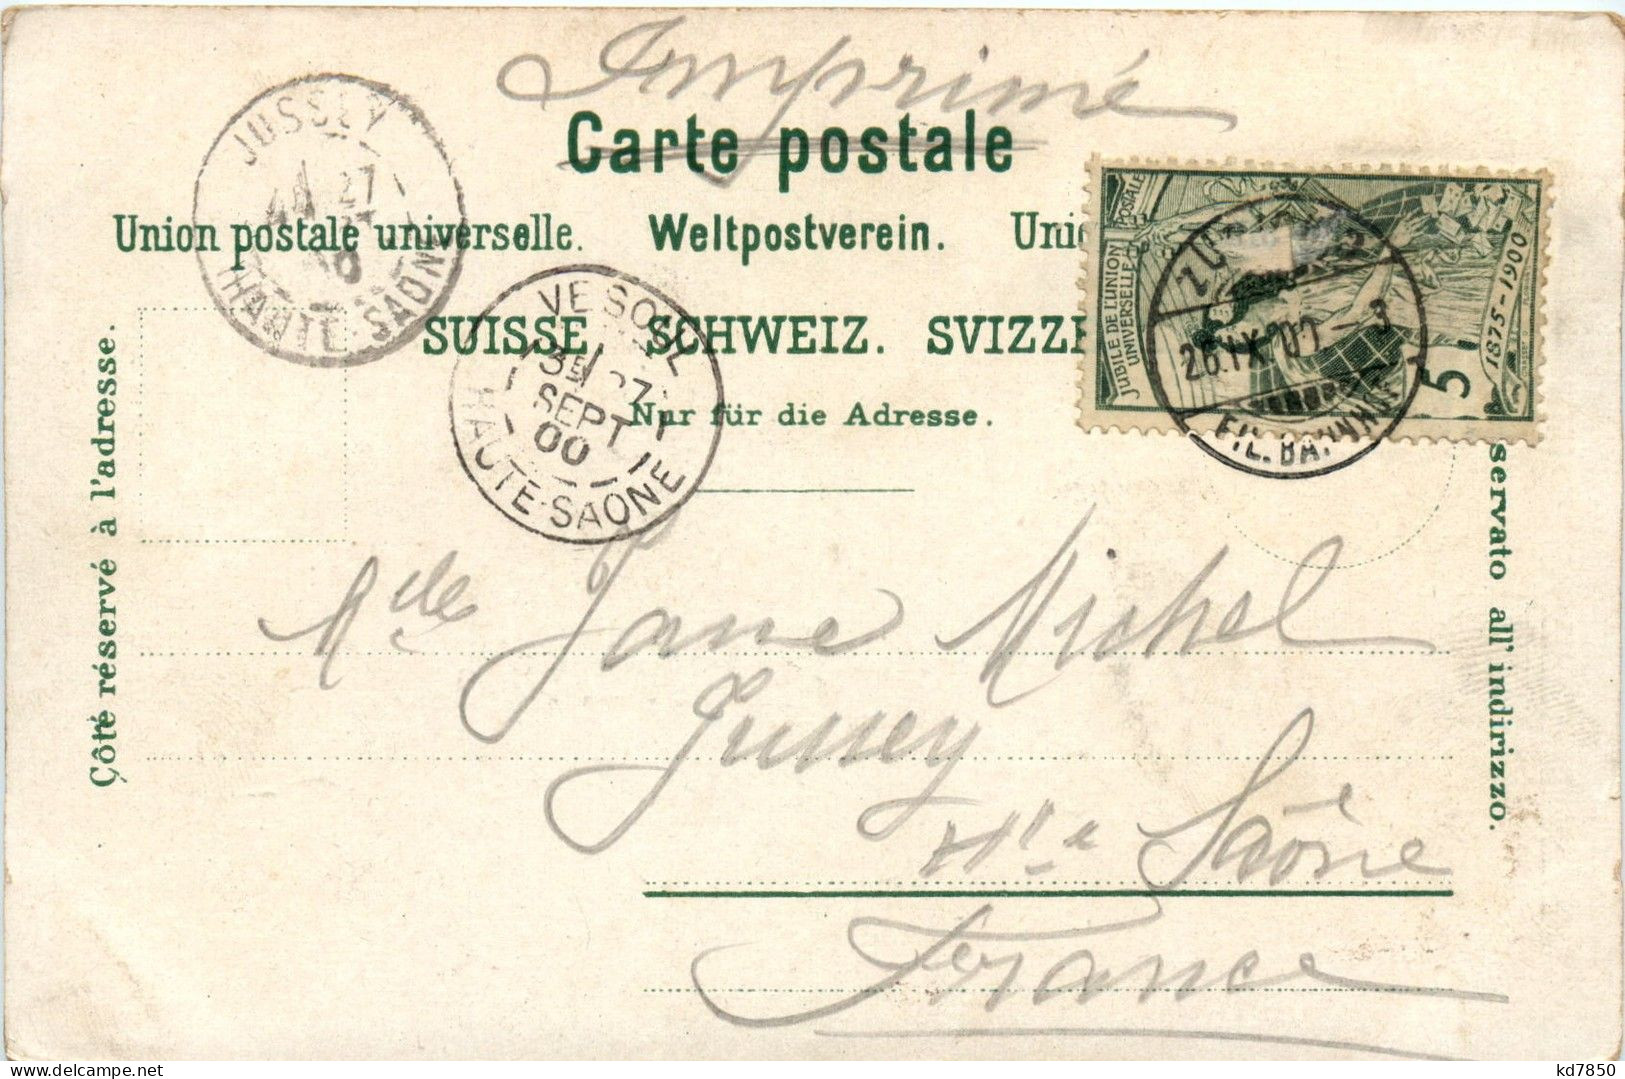 Imprimé
Carte postale
Union postale universelle. Weltpostverein.
SUISSE SCHWEIZ.
Nur für die Adresse.
Côté réservé à l'adresse.
servato all'indirizzo.
JUSSEY
27
HAUTE-SAONE
VESOUL
3E 27
SEPT
00
HAUTE-SAONE
JUBILÉ DE L'UNION
UNIVERSELLE
POSTALE
1875-1900
5
26.IX.00.-3
FIL.BAHNHOF
Mdle Jane Michel
Jussey
Hte Saône
France
kd7850